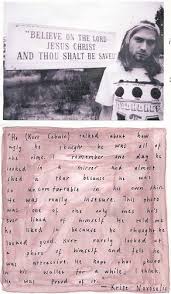 "BELIEVE ON THE LORD
JESUS CHRIST
AND THOU SHALT BE SAVED
"He (Kurt Cobain) talked about how
ugly he thought he was all of
the time. I remember one day he
looked in a mirror and almost
shed a tear because he was
so uncomfortable in his own skin.
He was really insecure. This photo
was one of the only ones he's
liked of himself. He told me
he liked because he thought he
looked good. Kurt rarely looked at
photos of himself and felt he
was attractive. He kept that photo
in his wallet for a while, I think.
He was proud of it."
— Krist Novoselic